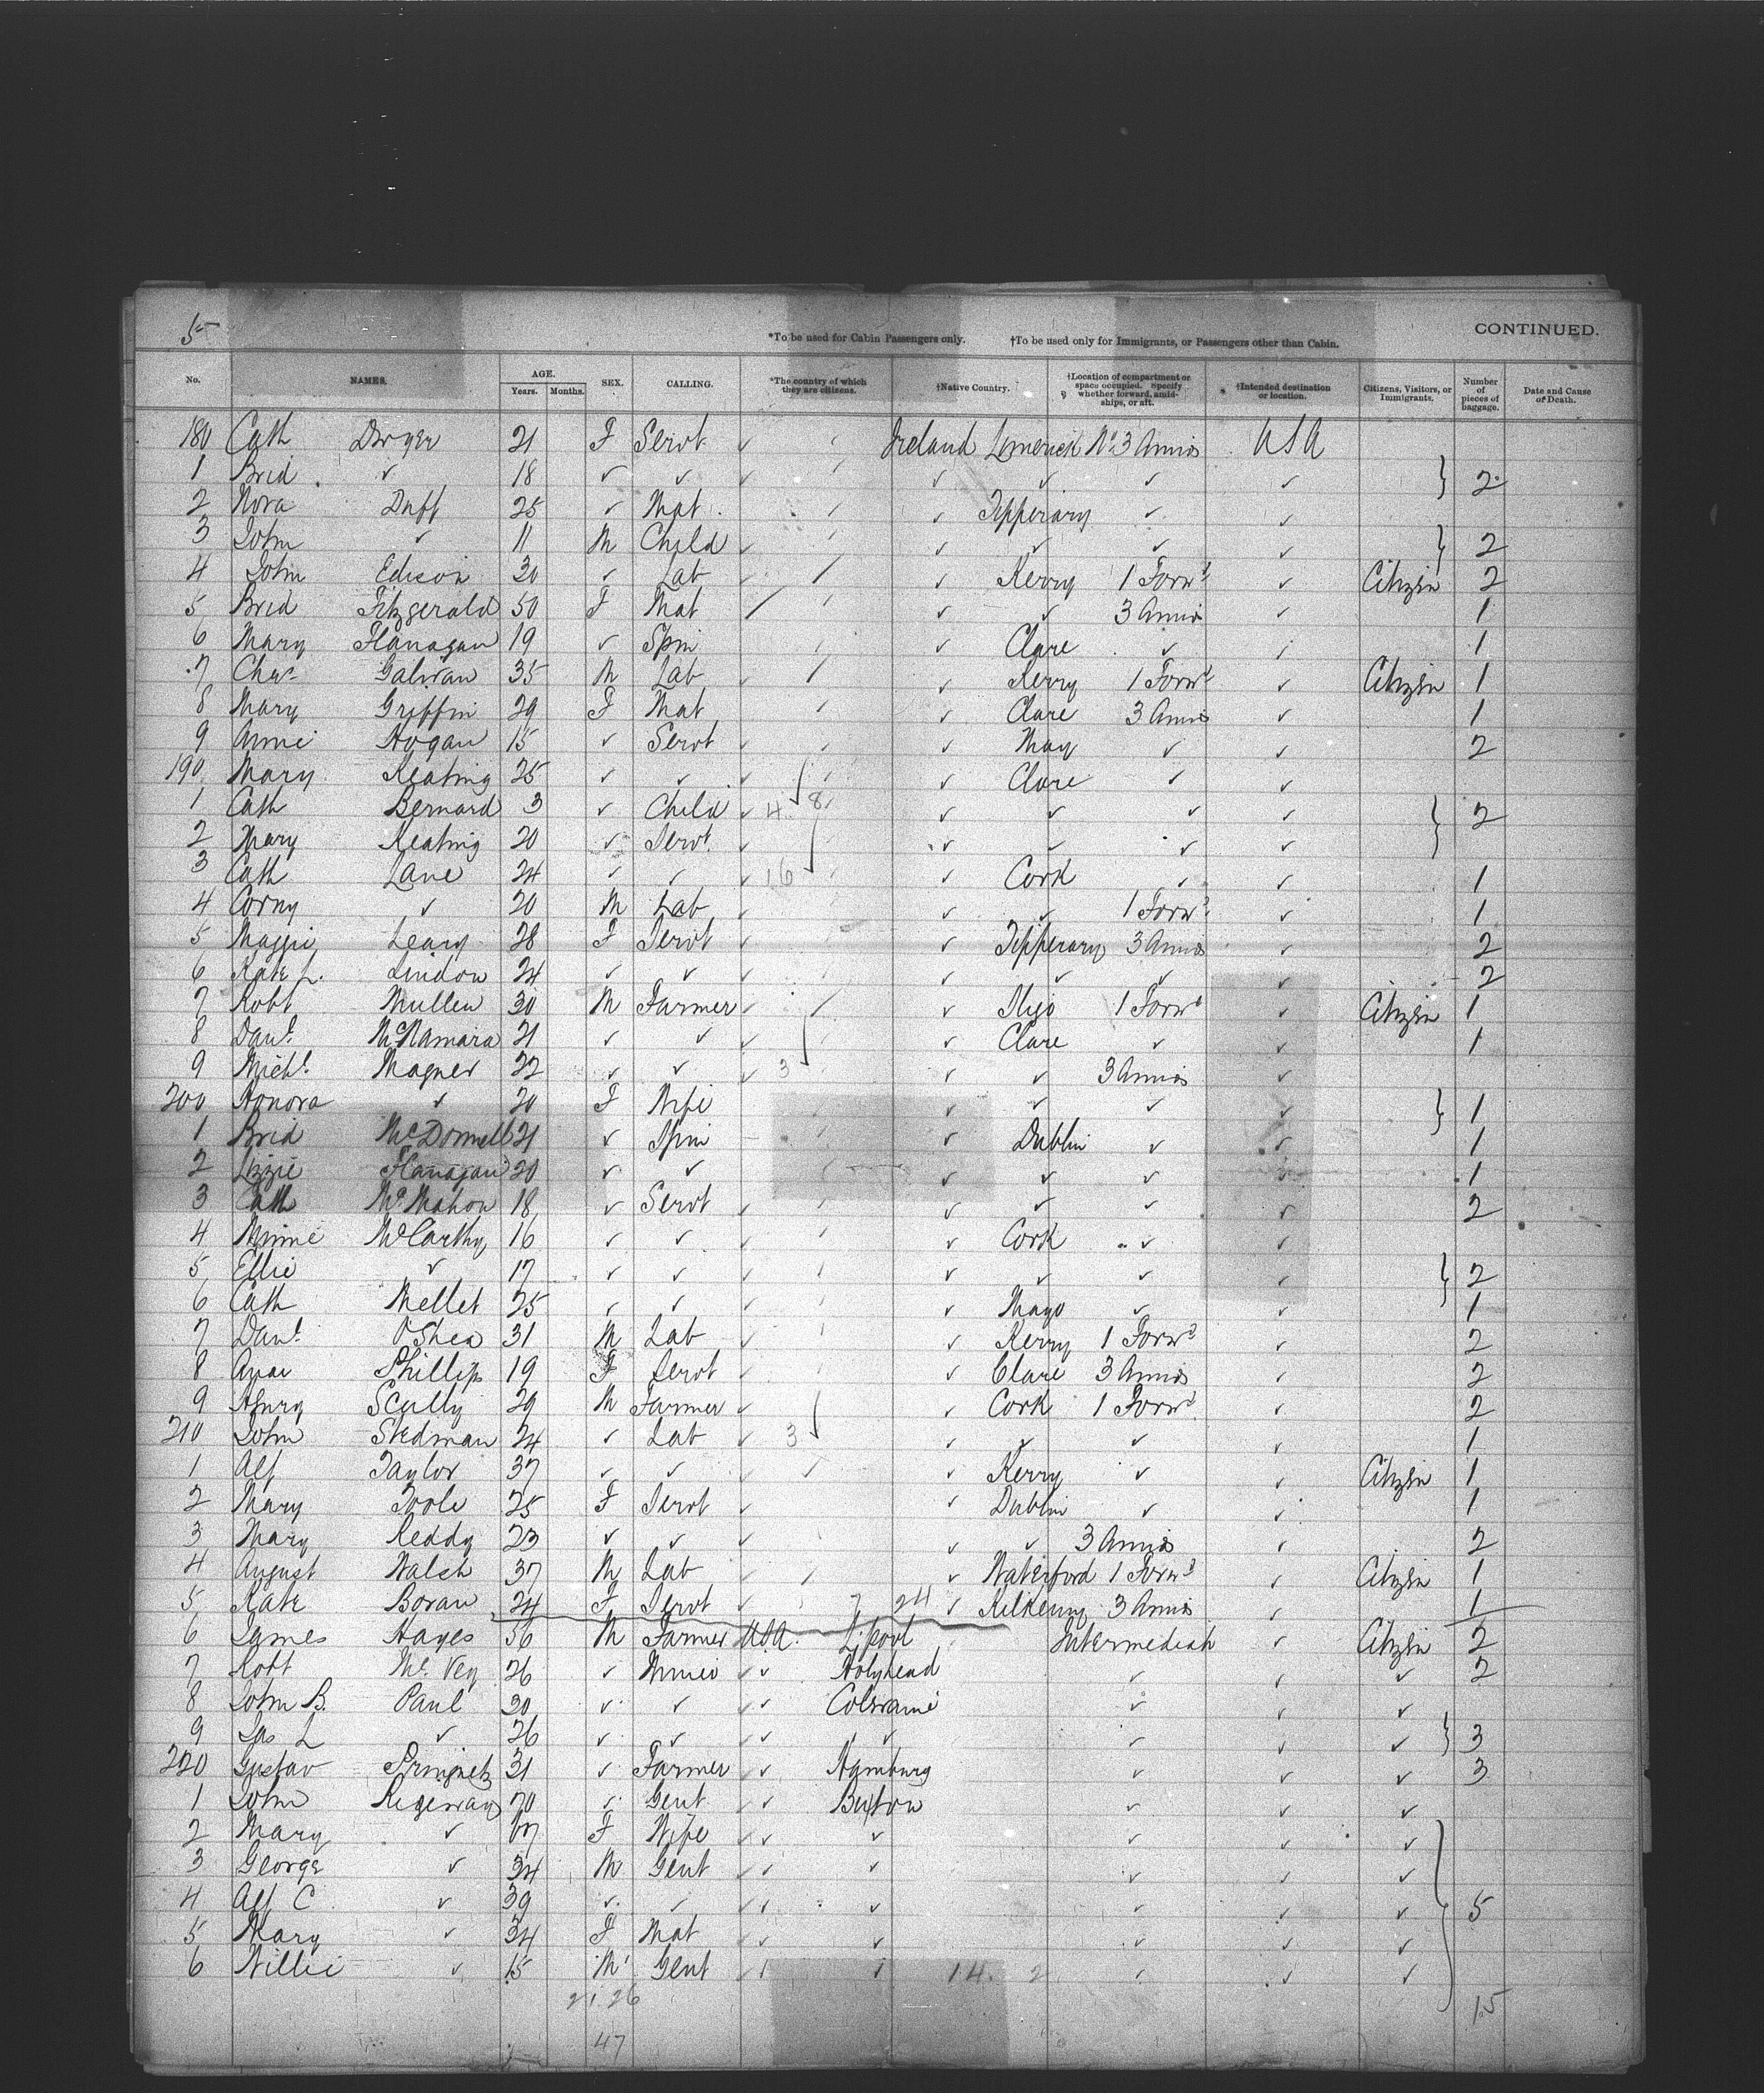 5
*To be used for Cabin Passengers only. †To be used only for Immigrants, or Passengers other than Cabin. CONTINUED.
No. NAMES. AGE. Years. Months. SEX. CALLING. *The country of which they are citizens. †Native Country. †Location of compartment or space occupied. Specify whether forward, amidships, or aft. †Intended destination or location. Citizens, Visitors, or Immigrants. Number of pieces of baggage. Date and Cause of Death.
180 Cath Dwyer 21 F Servt ✓ Ireland Limerick No 3 Amids USA
1 Brid ✓ 18 ✓ ✓ ✓ ✓ ✓ ✓ ✓ } 2
2 Nora Duff 25 ✓ Mat ✓ Tipperary ✓ ✓
3 John ✓ 11 M Child ✓ ✓ ✓ ✓ ✓ } 2
4 John Edison 30 ✓ Lab ✓ ✓ Kerry 1 Forwd ✓ Citizen 2
5 Brid Fitzgerald 50 F Mat ✓ ✓ 3 Amids ✓ 1
6 Mary Flanagan 19 ✓ Spin ✓ Clare ✓ ✓ 1
7 Chas Galwan 35 M Lab ✓ Kerry 1 Forwd ✓ Citizen 1
8 Mary Griffin 29 F Mat ✓ Clare 3 Amids ✓ 1
9 Annie Hogan 15 ✓ Servt ✓ ✓ May ✓ ✓ 2
190 Mary Keating 25 ✓ ✓ ✓ ✓ Clare ✓ ✓
1 Cath Bernard 3 ✓ Child ✓ 4 8 ✓ ✓ ✓ ✓ } 2
2 Mary Keating 20 ✓ Servt ✓ ✓ ✓ ✓ ✓
3 Cath Lane 24 ✓ ✓ ✓ 16 ✓ Cork ✓ ✓ 1
4 Corny ✓ 20 M Lab ✓ ✓ ✓ 1 Forwd ✓ 1
5 Maggie Leary 28 F Servt ✓ ✓ Tipperary 3 Amids ✓ 2
6 Kate L. Lindon 24 ✓ ✓ ✓ ✓ ✓ ✓ ✓ 2
7 Robt Mullen 30 M Farmer ✓ ✓ Sligo 1 Forwd ✓ Citizen 1
8 Danl McNamara 21 ✓ ✓ ✓ ✓ Clare ✓ ✓ 1
9 Michl Magner 22 ✓ ✓ ✓ 3 ✓ ✓ 3 Amids ✓
200 Honora ✓ 20 F Wife ✓ ✓ ✓ ✓ } 1
1 Brid McDonnell 21 ✓ Spin ✓ Dublin ✓ ✓ 1
2 Lizzie Flanagan 20 ✓ ✓ ✓ ✓ ✓ ✓ 1
3 Cath McMahon 18 ✓ Servt ✓ ✓ ✓ ✓ ✓ 2
4 Minnie McCarthy 16 ✓ ✓ ✓ ✓ Cork ✓ ✓
5 Ellie ✓ 17 ✓ ✓ ✓ ✓ ✓ ✓ ✓ } 2
6 Cath Mellet 25 ✓ ✓ ✓ ✓ Mayo ✓ ✓ 1
7 Danl O'Shea 31 M Lab ✓ ✓ Kerry 1 Forwd ✓ 2
8 Anne Phillips 19 F Servt ✓ ✓ Clare 3 Amids ✓ 2
9 Henry Scully 29 M Farmer ✓ ✓ Cork 1 Forwd ✓ 2
210 John Stedman 24 ✓ Lab ✓ 3 ✓ ✓ ✓ ✓ 1
1 Alf Taylor 37 ✓ ✓ ✓ ✓ Kerry ✓ ✓ Citizen 1
2 Mary Toole 25 F Servt ✓ ✓ Dublin ✓ ✓ 1
3 Mary Reddy 23 ✓ ✓ ✓ ✓ ✓ 3 Amids ✓ 2
4 August Walsh 37 M Lab ✓ ✓ Waterford 1 Forwd ✓ Citizen 1
5 Kate Boran 24 F Servt ✓ 7 24 ✓ Kilkenny 3 Amids ✓ 1
6 James Hayes 56 M Farmer USA L'pool Intermediate ✓ Citizen 2
7 Robt 26 ✓ ✓ ✓ Holyhead ✓ ✓ ✓ 2
8 John B. Paul 30 ✓ ✓ ✓ ✓ Colraine ✓ ✓ ✓
9 Jas L ✓ 26 ✓ ✓ ✓ ✓ ✓ ✓ ✓ ✓ } 3
220 Gustav 31 ✓ Farmer ✓ ✓ Hamburg ✓ ✓ ✓ 3
1 John Ridgway 70 ✓ Gent ✓ ✓ Buxton ✓ ✓ ✓
2 Mary ✓ 67 F Wife ✓ ✓ ✓ ✓ ✓ ✓
3 George ✓ 34 M Gent ✓ ✓ ✓ ✓ ✓ ✓
4 Alf C ✓ 39 ✓ ✓ ✓ ✓ ✓ ✓ ✓ ✓ } 5
5 Mary ✓ 34 F Mat ✓ ✓ ✓ ✓ ✓ ✓
6 Willie ✓ 15 M Gent ✓ ✓ ✓ 14. 2 ✓ ✓ ✓
21 26 15
47